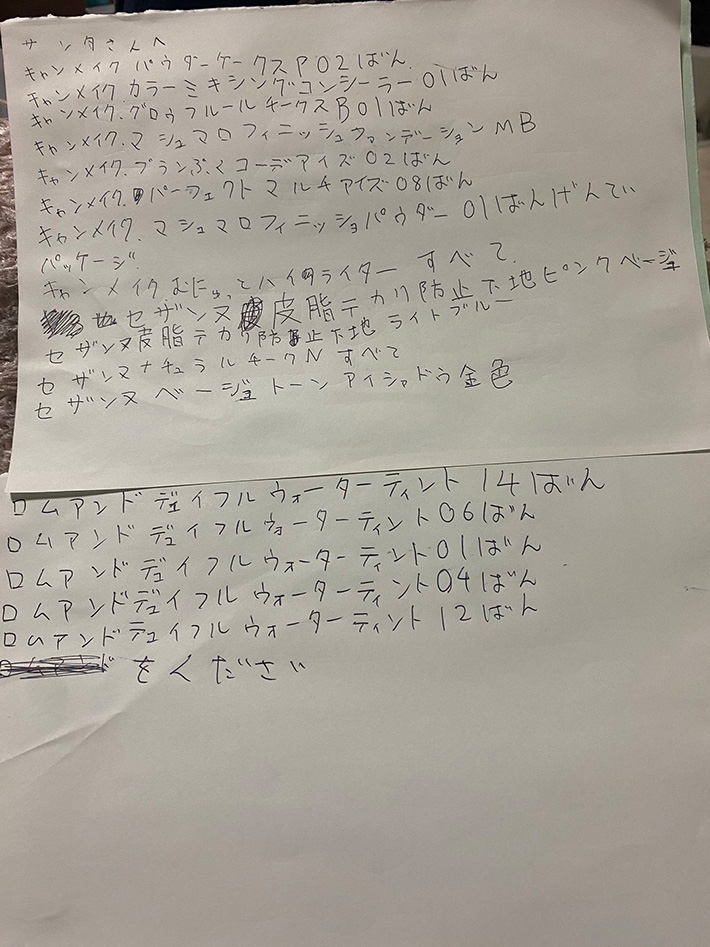 サンタさんへ
キャンメイク パウダーケークス P02ばん.
キャンメイク.カラーミキシングコンシーラー01ばん
キャンメイク.グロウフルールチークスB01ばん
キャンメイク.マシュマロフィニッシュファンデーションMB
キャンメイク.プランぷくコーデアイズ02ばん
キャンメイク.パーフェクトマルチアイズ08ばん
キャンメイク.マシュマロフィニッショパウダー01ばんげんてい
パッケージ.
キャンメイクむにゅっとハイライター すべて.
セザンヌ皮脂テカリ防止下地ピンクベージュ
セザンヌ皮脂テカリ防止下地 ライトブルー
セザンヌナチュラルチークN すべて
セザンヌ ベージュトーンアイシャドウ金色
ロムアンドデュイフルウォーターティント14ばん
ロムアンドデュイフルウォーターティント06ばん
ロムアンドデュイフルウォーターティント01ばん
ロムアンドデュイフルウォーターティント04ばん
ロムアンドデュイフルウォーターティント12ばん
をください